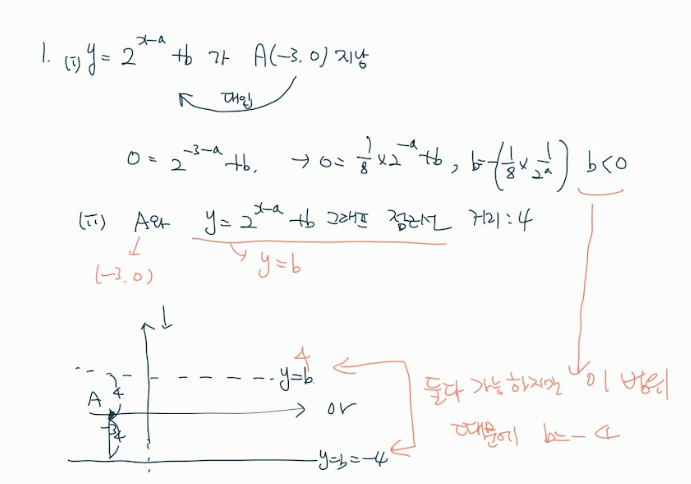 1. (i) y = 2^{x-a} + b 가 A(-3.0) 지남
대입
0 = 2^{-3-a} + b. → 0 = 1/8 × 2^{-a} + b, b = -(1/8 × 1/2^a) b < 0
(ii) A와 y = 2^{x-a} + b 그래프 점근선 거리 : 4
(-3.0) y = b
4
y = b
A 4
or
4
y = b = -4
둘다 가능하지만 이 범위
때문에 b = -4